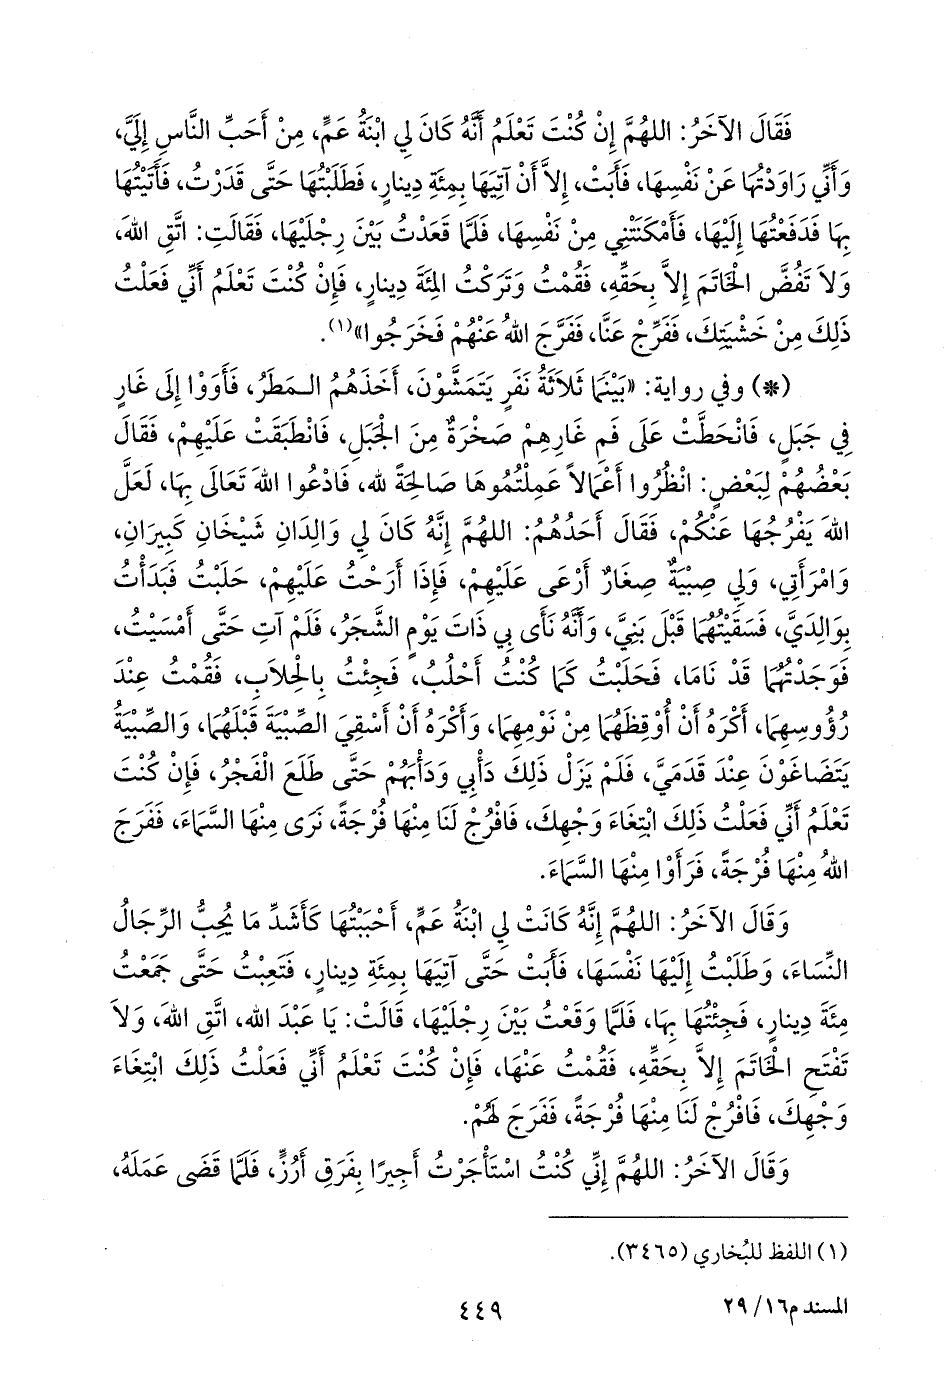 فَقَالَ الآخَرُ: اللهُمَّ إِنْ كُنْتَ تَعْلَمُ أَنَّهُ كَانَ لِي ابْنَةُ عَمٍّ، مِنْ أَحَبِّ النَّاسِ إِلَيَّ،
وَأَنِّي رَاوَدْتُهَا عَنْ نَفْسِهَا، فَأَبَتْ، إِلاَّ أَنْ آتِيَهَا بِمِئَةِ دِينَارٍ، فَطَلَبْتُهَا حَتَّى قَدَرْتُ، فَأَتَيْتُهَا
بِهَا فَدَفَعْتُهَا إِلَيْهَا، فَأَمْكَنَتْنِي مِنْ نَفْسِهَا، فَلَمَّا قَعَدْتُ بَيْنَ رِجْلَيْهَا، فَقَالَتِ: اتَّقِ اللهَ،
وَلاَ تَفُضَّ الْخَاتَمَ إِلاَّ بِحَقِّهِ، فَقُمْتُ وَتَرَكْتُ المِئَةَ دِينَارٍ، فَإِنْ كُنْتَ تَعْلَمُ أَنِّي فَعَلْتُ
ذَلِكَ مِنْ خَشْيَتِكَ، فَفَرِّجْ عَنَّا، فَفَرَّجَ اللهُ عَنْهُمْ فَخَرَجُوا»(١).
(*) وفي رواية: «بَيْنَمَا ثَلاَثَةُ نَفَرٍ يَتَمَشَّوْنَ، أَخَذَهُمُ الـمَطَرُ، فَأَوَوْا إِلَى غَارٍ
فِي جَبَلٍ، فَانْحَطَّتْ عَلَى فَمِ غَارِهِمْ صَخْرَةٌ مِنَ الجَبَلِ، فَانْطَبَقَتْ عَلَيْهِمْ، فَقَالَ
بَعْضُهُمْ لِبَعْضٍ: انْظُرُوا أَعْمَالاً عَمِلْتُمُوهَا صَالِحَةً لله، فَادْعُوا اللهَ تَعَالَى بِهَا، لَعَلَّ
اللهَ يَفْرُجُهَا عَنْكُمْ، فَقَالَ أَحَدُهُمُ: اللهُمَّ إِنَّهُ كَانَ لِي وَالِدَانِ شَيْخَانِ كَبِيرَانِ،
وَامْرَأَتِي، وَلِي صِبْيَةٌ صِغَارٌ أَرْعَى عَلَيْهِمْ، فَإِذَا أَرَحْتُ عَلَيْهِمْ، حَلَبْتُ فَبَدَأْتُ
بِوَالِدَيَّ، فَسَقَيْتُهُمَا قَبْلَ بَنِيَّ، وَأَنَّهُ نَأَى بِي ذَاتَ يَوْمٍ الشَّجَرُ، فَلَمْ آتِ حَتَّى أَمْسَيْتُ،
فَوَجَدْتُهُمَا قَدْ نَامَا، فَحَلَبْتُ كَمَا كُنْتُ أَحْلُبُ، فَجِئْتُ بِالحِلاَبِ، فَقُمْتُ عِنْدَ
رُؤُوسِهِمَا، أَكْرَهُ أَنْ أُوقِظَهُمَا مِنْ نَوْمِهِمَا، وَأَكْرَهُ أَنْ أَسْقِيَ الصِّبْيَةَ قَبْلَهُمَا، وَالصِّبْيَةُ
يَتَضَاغَوْنَ عِنْدَ قَدَمَيَّ، فَلَمْ يَزَلْ ذَلِكَ دَأْبِي وَدَأْبَهُمْ حَتَّى طَلَعَ الْفَجْرُ، فَإِنْ كُنْتَ
تَعْلَمُ أَنِّي فَعَلْتُ ذَلِكَ ابْتِغَاءَ وَجْهِكَ، فَافْرُجْ لَنَا مِنْهَا فُرْجَةً، نَرَى مِنْهَا السَّمَاءَ، فَفَرَجَ
اللهُ مِنْهَا فُرْجَةً، فَرَأَوْا مِنْهَا السَّمَاءَ.
وَقَالَ الآخَرُ: اللهُمَّ إِنَّهُ كَانَتْ لِي ابْنَةُ عَمٍّ، أَحْبَبْتُهَا كَأَشَدِّ مَا يُحِبُّ الرِّجَالُ
النِّسَاءَ، وَطَلَبْتُ إِلَيْهَا نَفْسَهَا، فَأَبَتْ حَتَّى آتِيَهَا بِمِئَةِ دِينَارٍ، فَتَعِبْتُ حَتَّى جَمَعْتُ
مِئَةَ دِينَارٍ، فَجِئْتُهَا بِهَا، فَلَمَّا وَقَعْتُ بَيْنَ رِجْلَيْهَا، قَالَتْ: يَا عَبْدَ الله، اتَّقِ اللهَ، وَلاَ
تَفْتَحِ الْخَاتَمَ إِلاَّ بِحَقِّهِ، فَقُمْتُ عَنْهَا، فَإِنْ كُنْتَ تَعْلَمُ أَنِّي فَعَلْتُ ذَلِكَ ابْتِغَاءَ
وَجْهِكَ، فَافْرُجْ لَنَا مِنْهَا فُرْجَةً، فَفَرَجَ لَهُمْ.
وَقَالَ الآخَرُ: اللهُمَّ إِنِّي كُنْتُ اسْتَأْجَرْتُ أَجِيرًا بِفَرَقِ أَرُزٍّ، فَلَمَّا قَضَى عَمَلَهُ،
(١) اللفظ للبُخاري (٣٤٦٥).
المسند م١٦/ ٢٩
٤٤٩